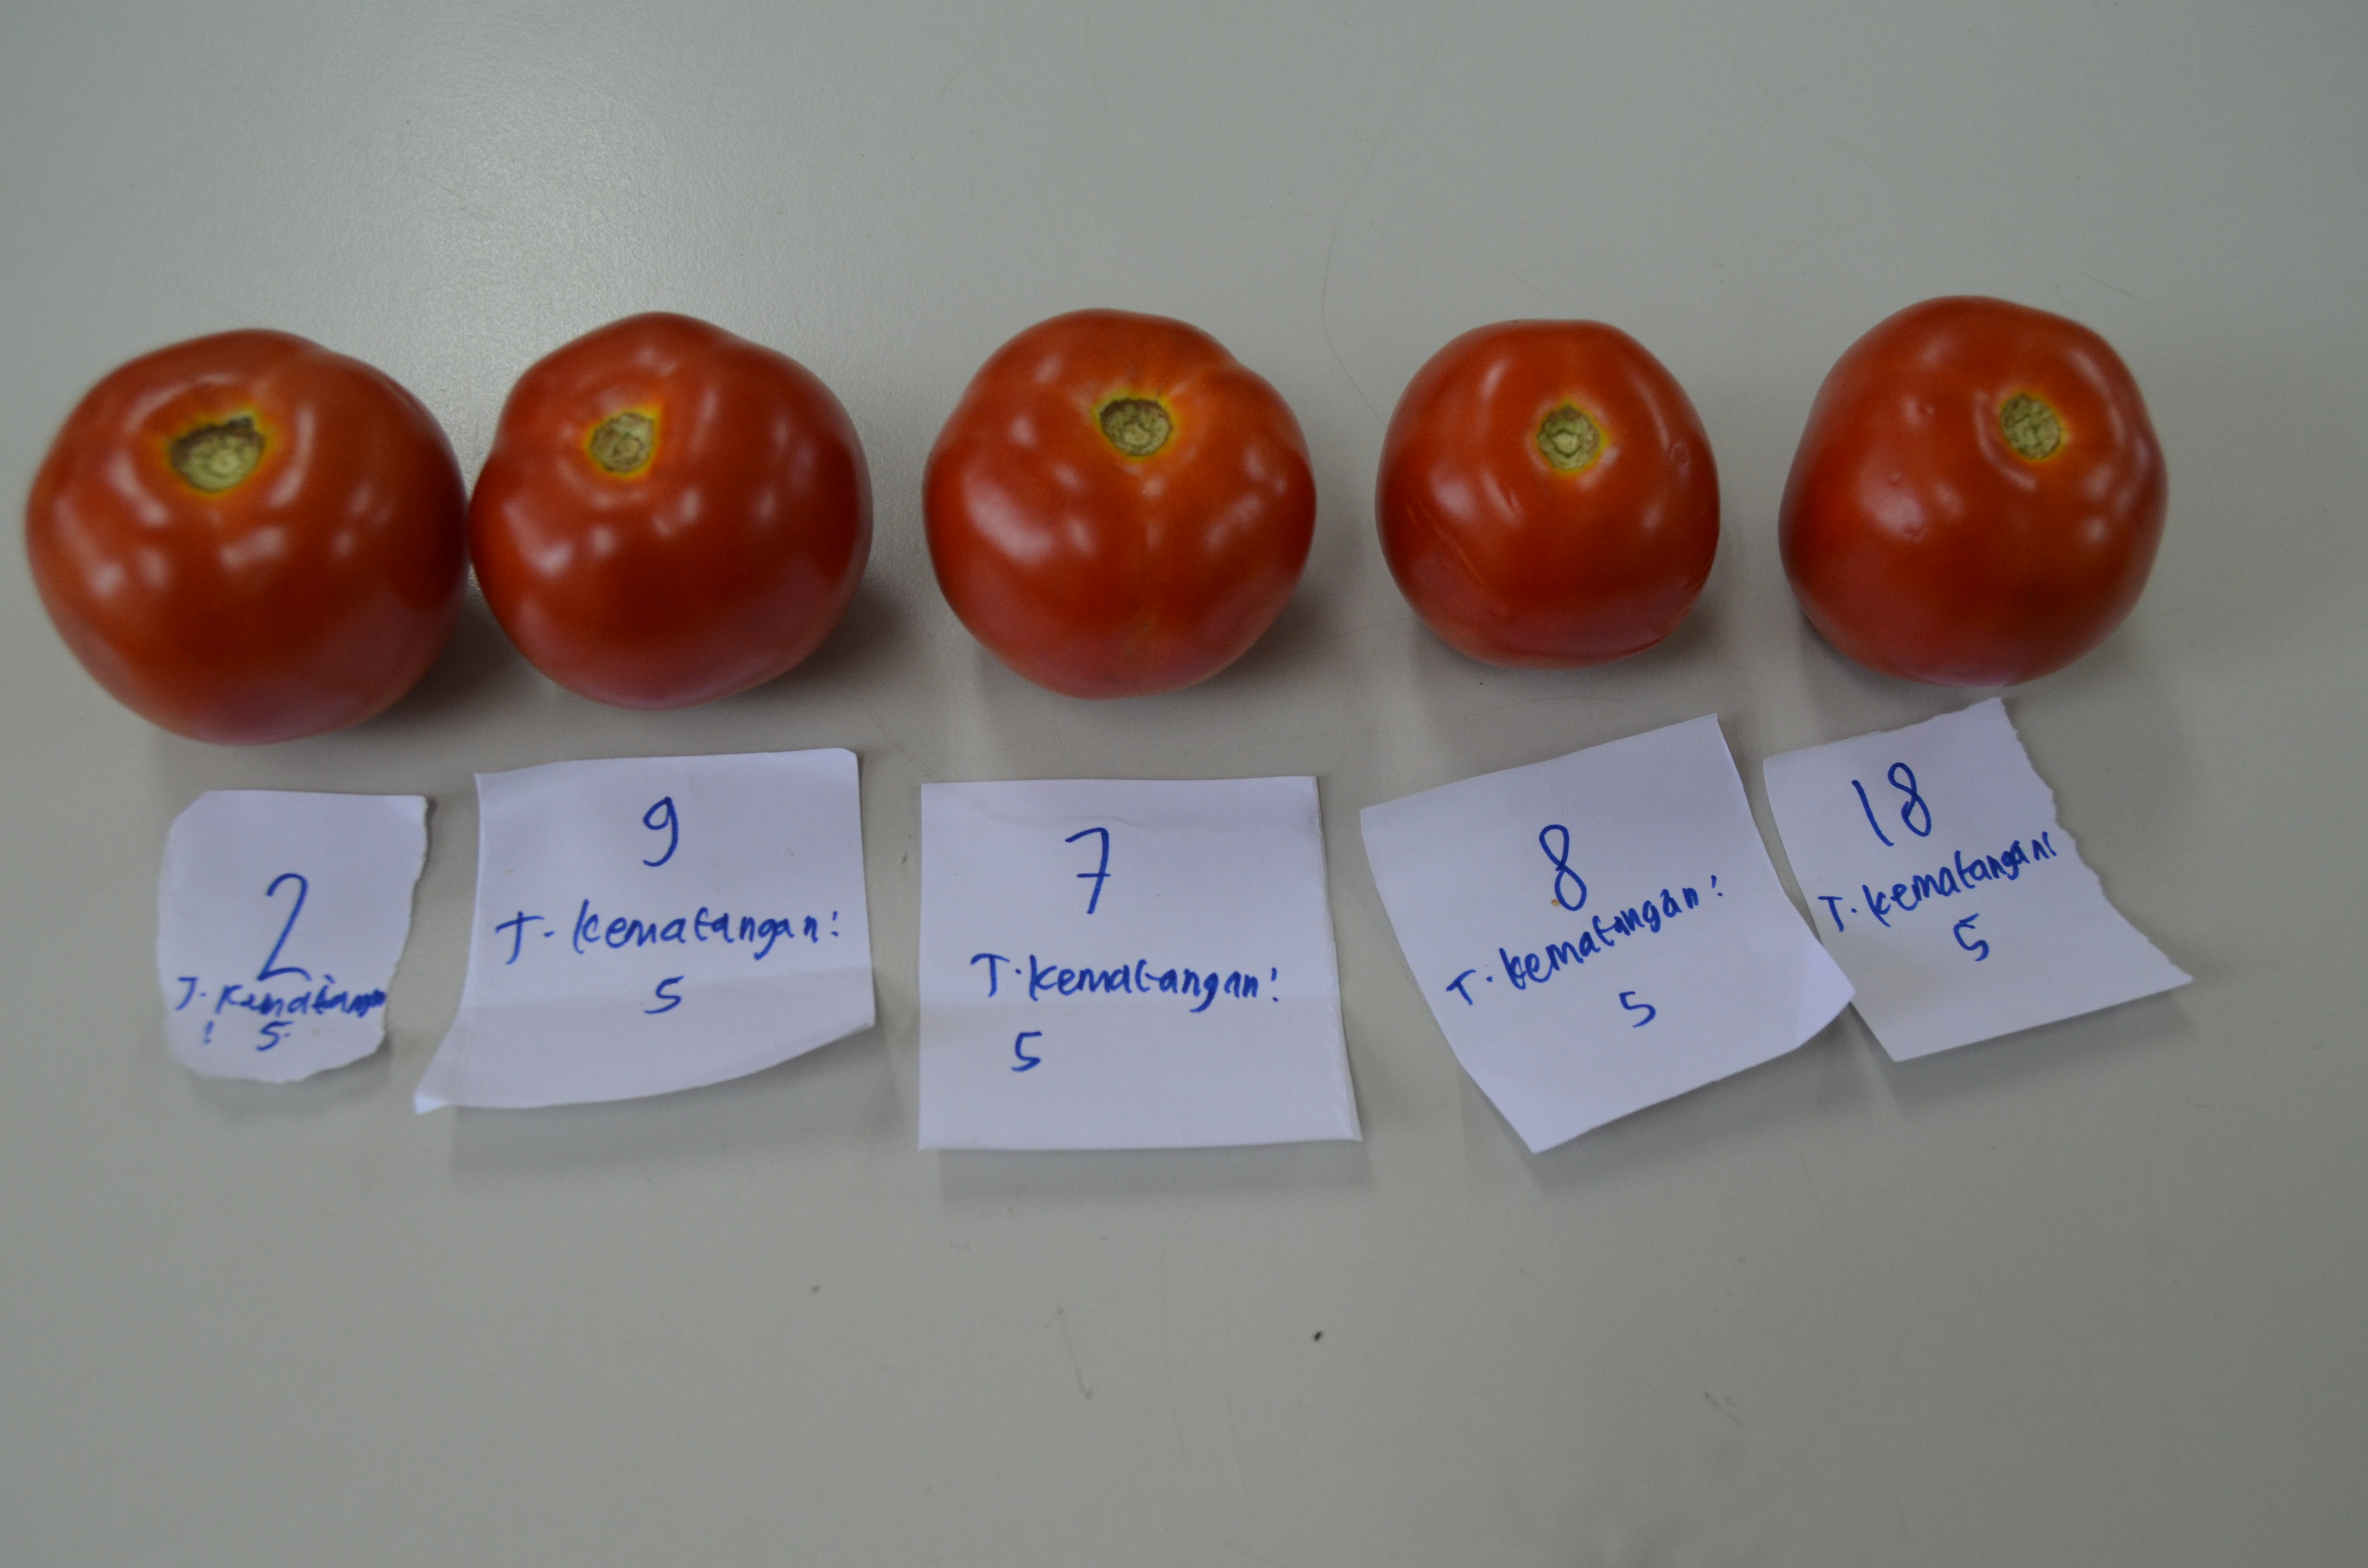 2
T. Kematangan
: 5
9
T. kematangan:
5
7
T. kematangan:
5
8
T. kematangan:
5
18
T. kematangan:
5